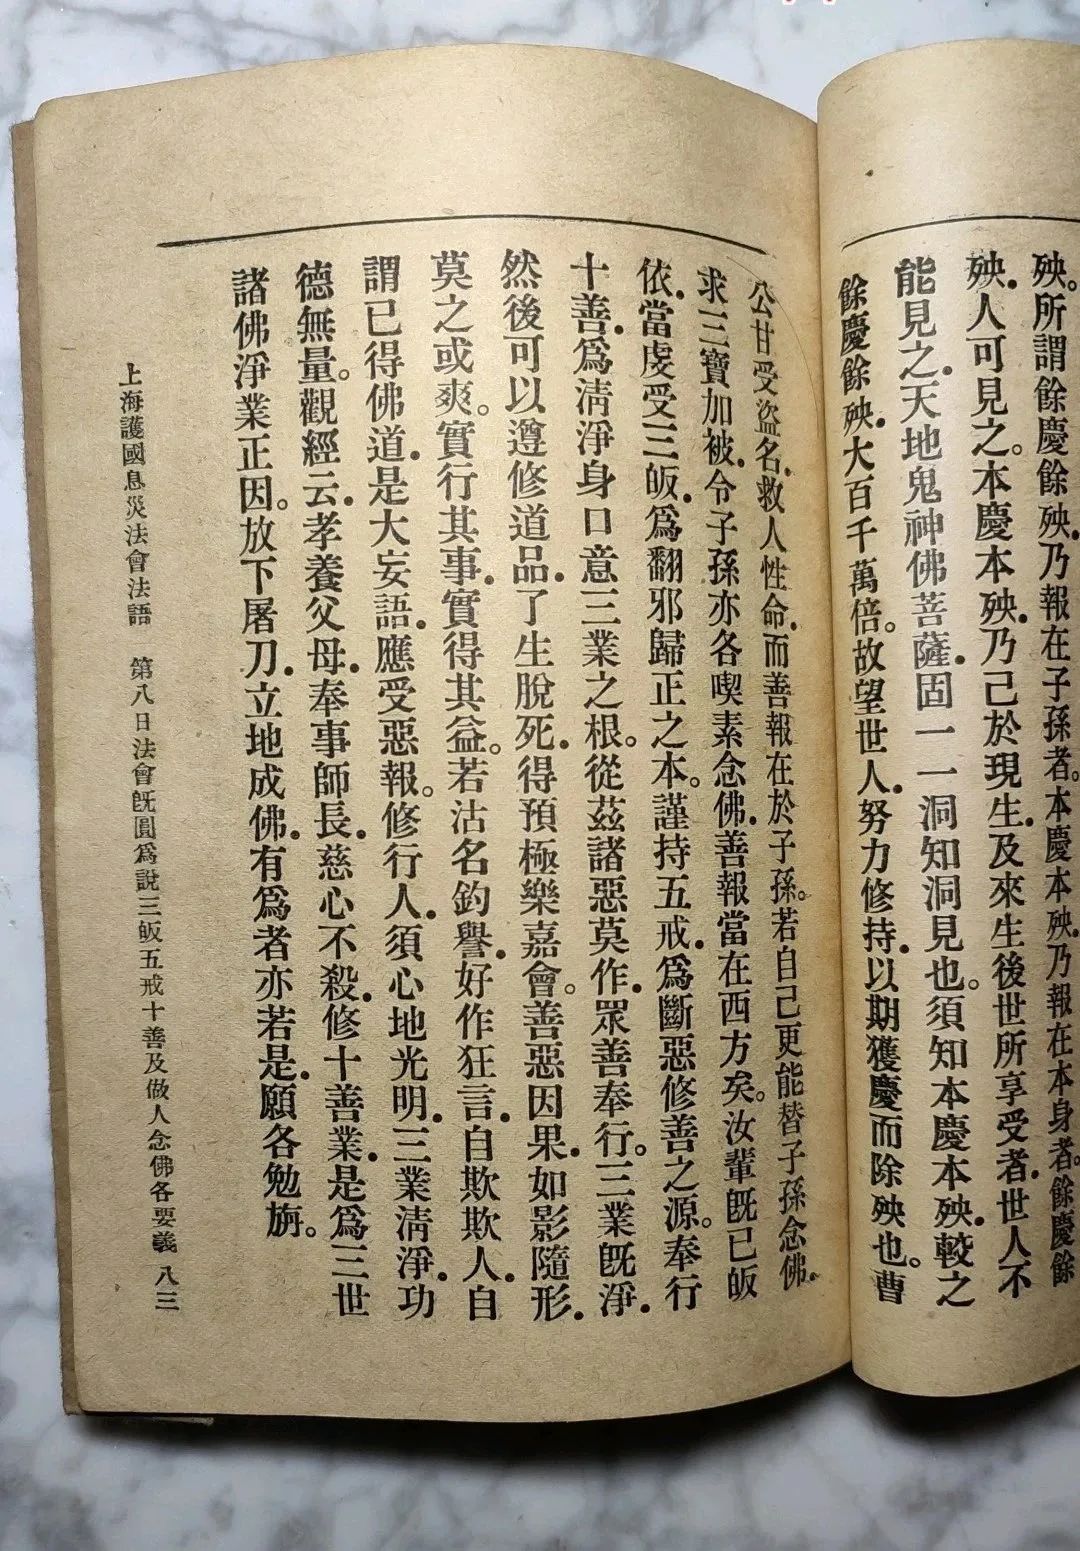 殃。所謂餘慶餘殃。乃報在子孫者。本慶本殃。乃報在本身者。餘慶餘
殃。人可見之。本慶本殃。乃己於現生。及來生後世所享受者。世人不
能見之。天地鬼神佛菩薩。固一一洞知洞見也。須知本慶本殃。較之
餘慶餘殃。大百千萬倍。故望世人。努力修持。以期獲慶而除殃也。曹
公甘受盜名。救人性命。而善報在於子孫。若自己更能替子孫念佛。
求三寶加被。令子孫亦各喫素念佛。善報當在西方矣。汝輩既已皈
依。當虔受三皈。爲翻邪歸正之本。謹持五戒。爲斷惡修善之源。奉行
十善。爲清淨身口意三業之根。從茲諸惡莫作。眾善奉行。三業既淨。
然後可以遵修道品。了生脫死。得預極樂嘉會。善惡因果。如影隨形。
莫之或爽。實行其事。實得其益。若沽名釣譽。好作狂言。自欺欺人。自
謂已得佛道。是大妄語。應受惡報。修行人。須心地光明。三業清淨。功
德無量。觀經云。孝養父母。奉事師長。慈心不殺。修十善業。是爲三世
諸佛淨業正因。放下屠刀。立地成佛。有爲者亦若是。願各勉旃。
上海護國息災法會法語　第八日法會既圓爲說三皈五戒十善及做人念佛各要義　八三